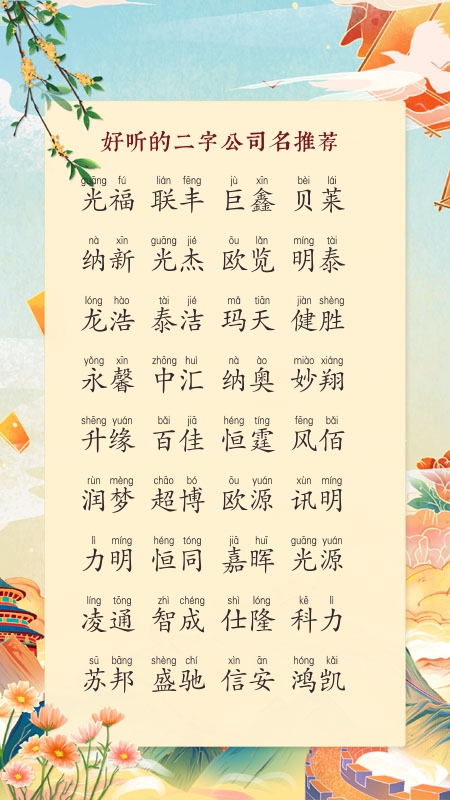 好听的二字公司名推荐
guāng fú lián fēng jù xīn bèi lái
光福 联丰 巨鑫 贝莱
nà xīn guāng jié ōu lǎn míng tài
纳新 光杰 欧览 明泰
lóng hào tài jié mǎ tiān jiàn shèng
龙浩 泰洁 玛天 健胜
yǒng xīn zhōng huì nà ào miào xiáng
永馨 中汇 纳奥 妙翔
shēng yuán bǎi jiā héng tíng fēng bǎi
升缘 百佳 恒霆 风佰
rùn mèng chāo bó ōu yuán xùn míng
润梦 超博 欧源 讯明
lì míng héng tóng jiā huī guāng yuán
力明 恒同 嘉晖 光源
líng tōng zhì chéng shì lóng kē lì
凌通 智成 仕隆 科力
sū bāng shèng chí xìn ān hóng kǎi
苏邦 盛驰 信安 鸿凯